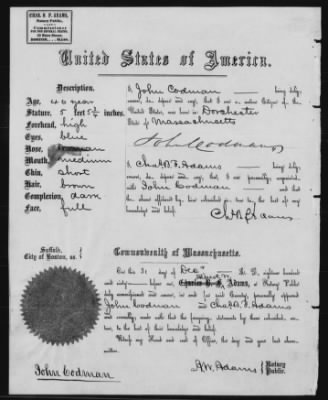 CHAS. B. F. ADAMS,
Notary Public,
Commissioner
BOSTON, MASS.
United States of America.
Description.
Age, 40 year
Stature, 5 feet 5½ inches.
Forehead, high
Eyes, blue
Nose,
Mouth, medium
Chin, short
Hair, brown
Complexion, dark
Face, full
I, John Codman being duly
sworn, do depose and say, that I am a native Citizen of the
United States, was born in Dorchester
State of Massachusetts
John Codman
I, Chas B. F. Adams being duly
sworn, do depose and say, that I am personally acquainted
with John Codman and that
the above affidavit, by him subscribed, is true, to the best of my
knowledge and belief.
Suffolk,
City of Boston, ss.
Commonwealth of Massachusetts.
On this 31 day of Dec A. D. eighteen hundred
and sixty before me, Charles B. F. Adams, a Notary Public
duly commissioned and sworn, in and for said County, personally appeared
John Codman and Chas B. F. Adams
and severally made oath that the foregoing statements by them subscribed, are
true, to the best of their knowledge and belief.
Witness my Hand and Seal of Office, the day and year last above
written.
John Codman
A.W. Adams Notary
Public.